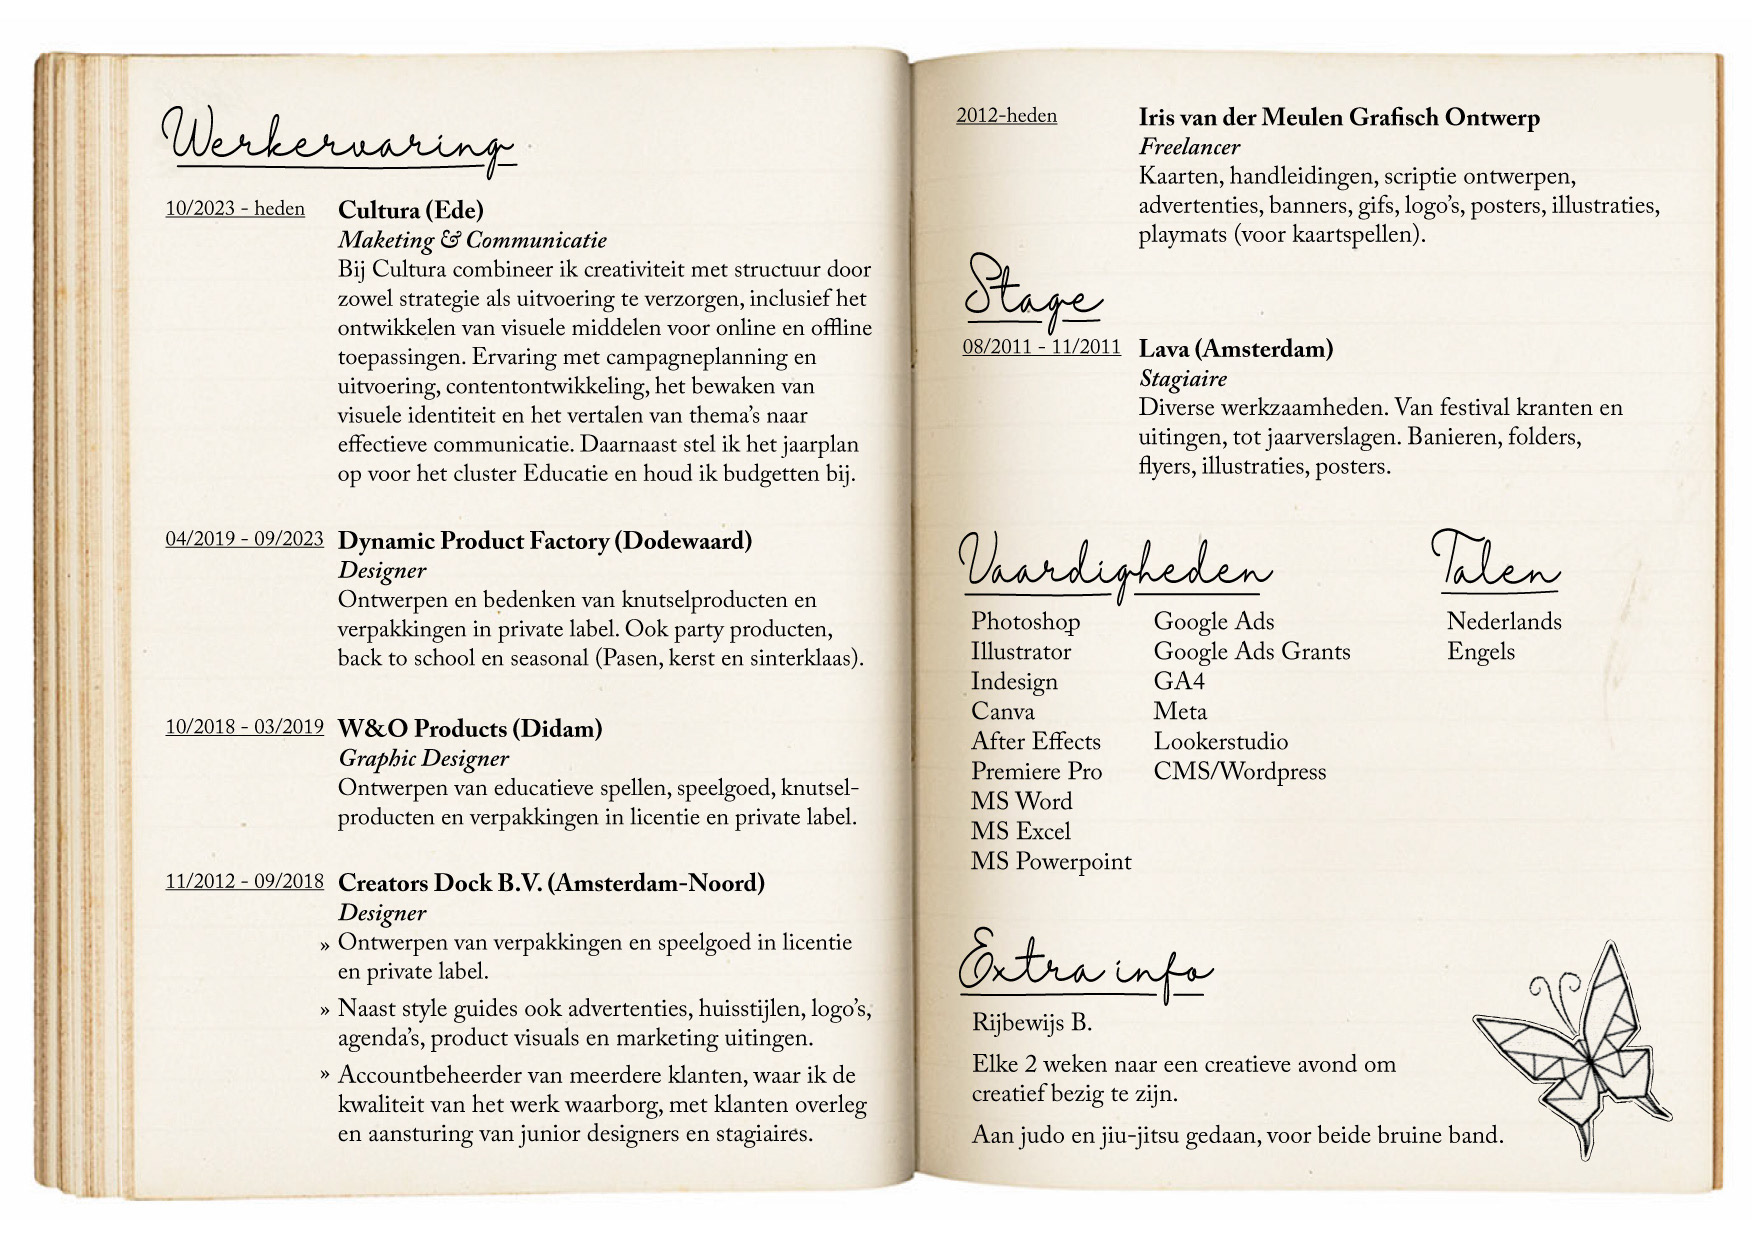 Werkervaring
10/2023 - heden
Cultura (Ede)
Maketing & Communicatie
Bij Cultura combineer ik creativiteit met structuur door
zowel strategie als uitvoering te verzorgen, inclusief het
ontwikkelen van visuele middelen voor online en offline
toepassingen. Ervaring met campagneplanning en
uitvoering, contentontwikkeling, het bewaken van
visuele identiteit en het vertalen van thema's naar
effectieve communicatie. Daarnaast stel ik het jaarplan
op voor het cluster Educatie en houd ik budgetten bij.
04/2019 - 09/2023
Dynamic Product Factory (Dodewaard)
Designer
Ontwerpen en bedenken van knutselproducten en
verpakkingen in private label. Ook party producten,
back to school en seasonal (Pasen, kerst en sinterklaas).
10/2018 - 03/2019
W&O Products (Didam)
Graphic Designer
Ontwerpen van educatieve spellen, speelgoed, knutsel-
producten en verpakkingen in licentie en private label.
11/2012 - 09/2018
Creators Dock B.V. (Amsterdam-Noord)
Designer
» Ontwerpen van verpakkingen en speelgoed in licentie
en private label.
» Naast style guides ook advertenties, huisstijlen, logo's,
agenda's, product visuals en marketing uitingen.
» Accountbeheerder van meerdere klanten, waar ik de
kwaliteit van het werk waarborg, met klanten overleg
en aansturing van junior designers en stagiaires.
2012-heden
Iris van der Meulen Grafisch Ontwerp
Freelancer
Kaarten, handleidingen, scriptie ontwerpen,
advertenties, banners, gifs, logo's, posters, illustraties,
playmats (voor kaartspellen).
Stage
08/2011 - 11/2011
Lava (Amsterdam)
Stagiaire
Diverse werkzaamheden. Van festival kranten en
uitingen, tot jaarverslagen. Banieren, folders,
flyers, illustraties, posters.
Vaardigheden
Photoshop
Illustrator
Indesign
Canva
After Effects
Premiere Pro
MS Word
MS Excel
MS Powerpoint
Google Ads
Google Ads Grants
GA4
Meta
Lookerstudio
CMS/Wordpress
Talen
Nederlands
Engels
Extra info
Rijbewijs B.
Elke 2 weken naar een creatieve avond om
creatief bezig te zijn.
Aan judo en jiu-jitsu gedaan, voor beide bruine band.